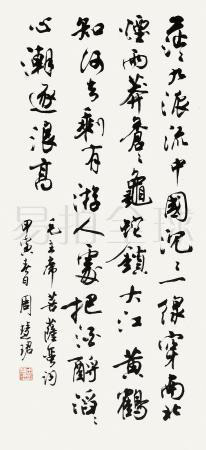 茫茫九派流中國沉沉一線穿南北
煙雨莽蒼蒼龜蛇鎖大江黃鶴
知何去剩有游人處把酒酹滔滔
心潮逐浪高
毛主席菩薩蠻詞
甲寅春日周慧珺
易拍全球